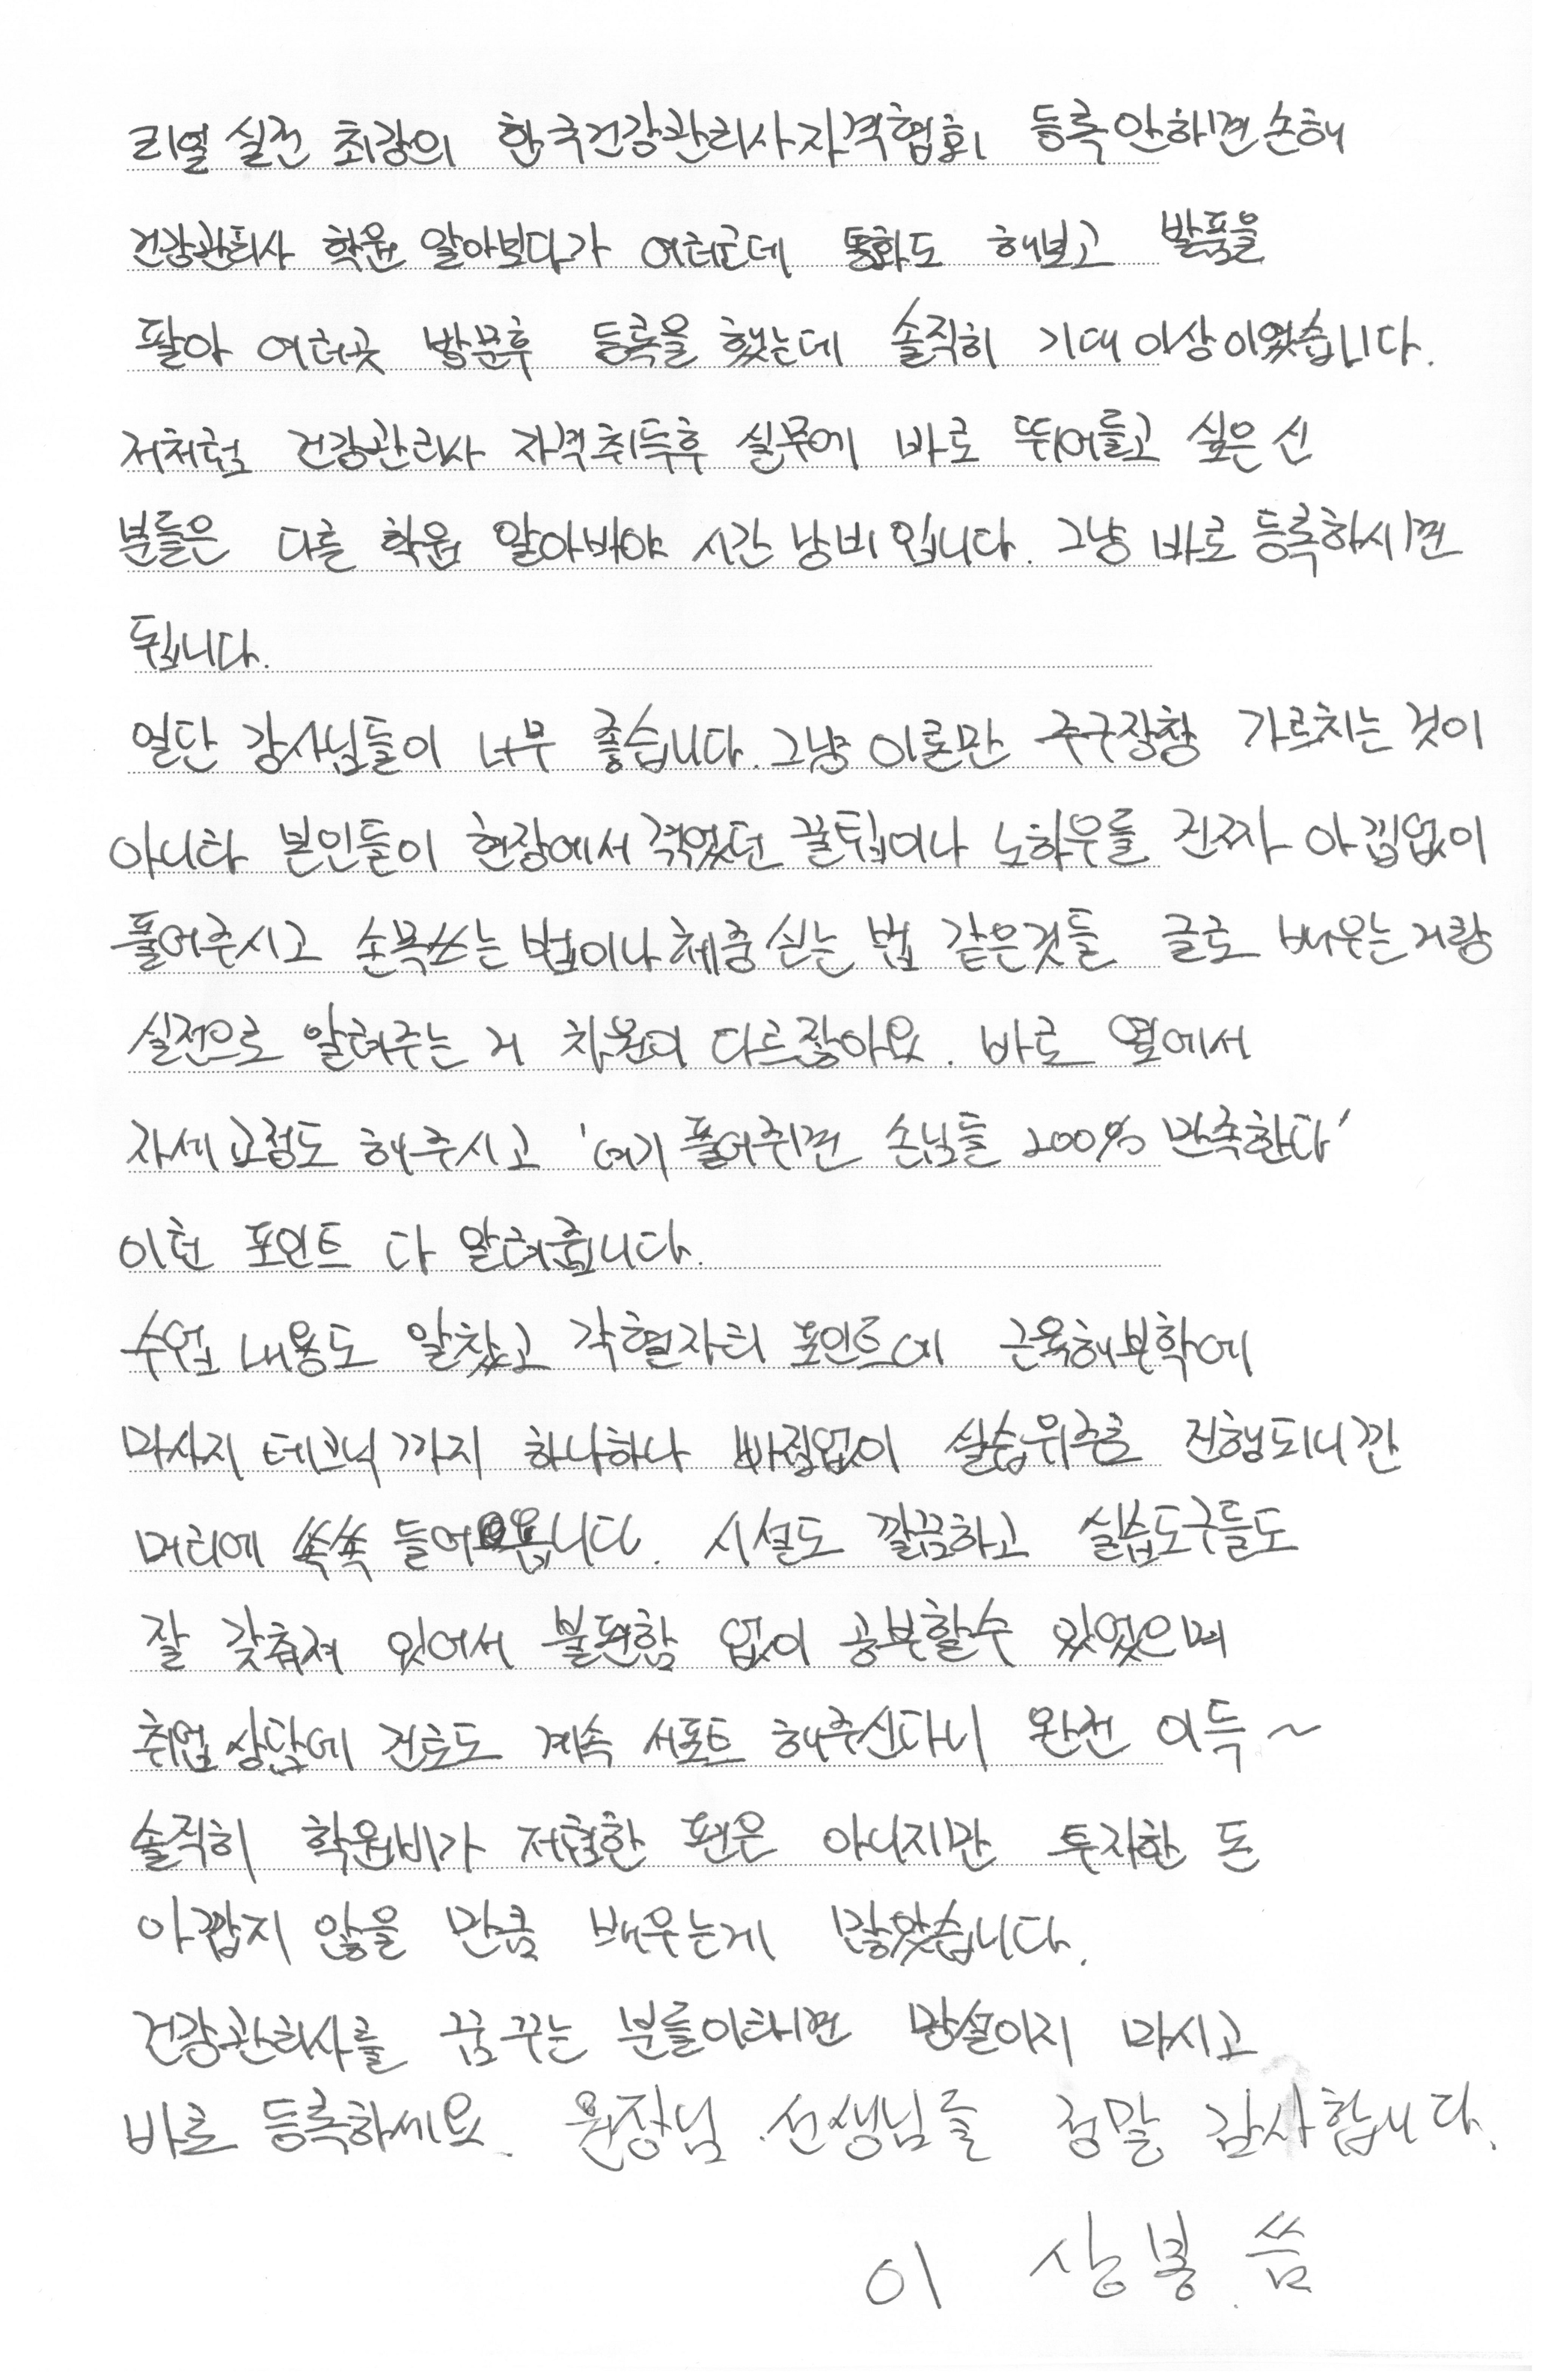 리얼 실전 최강의 한국건강관리사자격협회 등록안하면손해
건강관리사 학원 알아보다가 여러군데 통화도 해보고 발품을
팔아 여러곳 방문후 등록을 했는데 솔직히 기대이상이었습니다.
저처럼 건강관리사 자격취득후 실무에 바로 뛰어들고 싶은신
분들은 다른 학원 알아봐야 시간 낭비입니다. 그냥 바로 등록하시면
됩니다.
일단 강사님들이 너무 좋습니다. 그냥 이론만 주구장창 가르치는 것이
아니라 본인들이 현장에서 겪었던 꿀팁이나 노하우를 진짜 아낌없이
풀어주시고 손목쓰는 법이나 체중싣는 법 같은것들 글로 배우는거랑
실전으로 알려주는 거 차원이 다르잖아요. 바로 옆에서
자세교정도 해주시고 '여기 풀어주면 손님들 200% 만족한다'
이런 포인트 다 알려줍니다.
수업 내용도 알찼고 각혈자리 포인트에 근육해부학에
마사지 테크닉까지 하나하나 빠짐없이 실습위주로 진행되니깐
머리에 쏙쏙 들어옵니다. 시설도 깔끔하고 실습도구들도
잘 갖춰져 있어서 불편함 없이 공부할수 있었으며
취업상담에 진로도 계속 서포트 해주신다니 완전 이득~
솔직히 학원비가 저렴한 편은 아니지만 투자한 돈
아깝지 않을 만큼 배우는게 많았습니다.
건강관리사를 꿈꾸는 분들이라면 망설이지 마시고
바로 등록하세요. 원장님 선생님들 정말 감사합니다.
이 상봉 씀